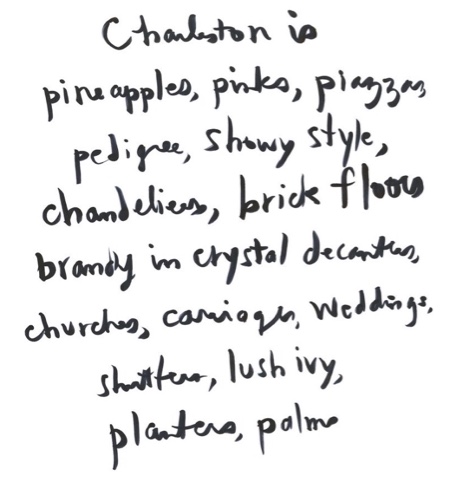 Charleston is
pineapples, pinks, piazzas,
pedigree, showy style,
chandeliers, brick floors
brandy in crystal decanters,
churches, carriages, weddings,
shutters, lush ivy,
planters, palms